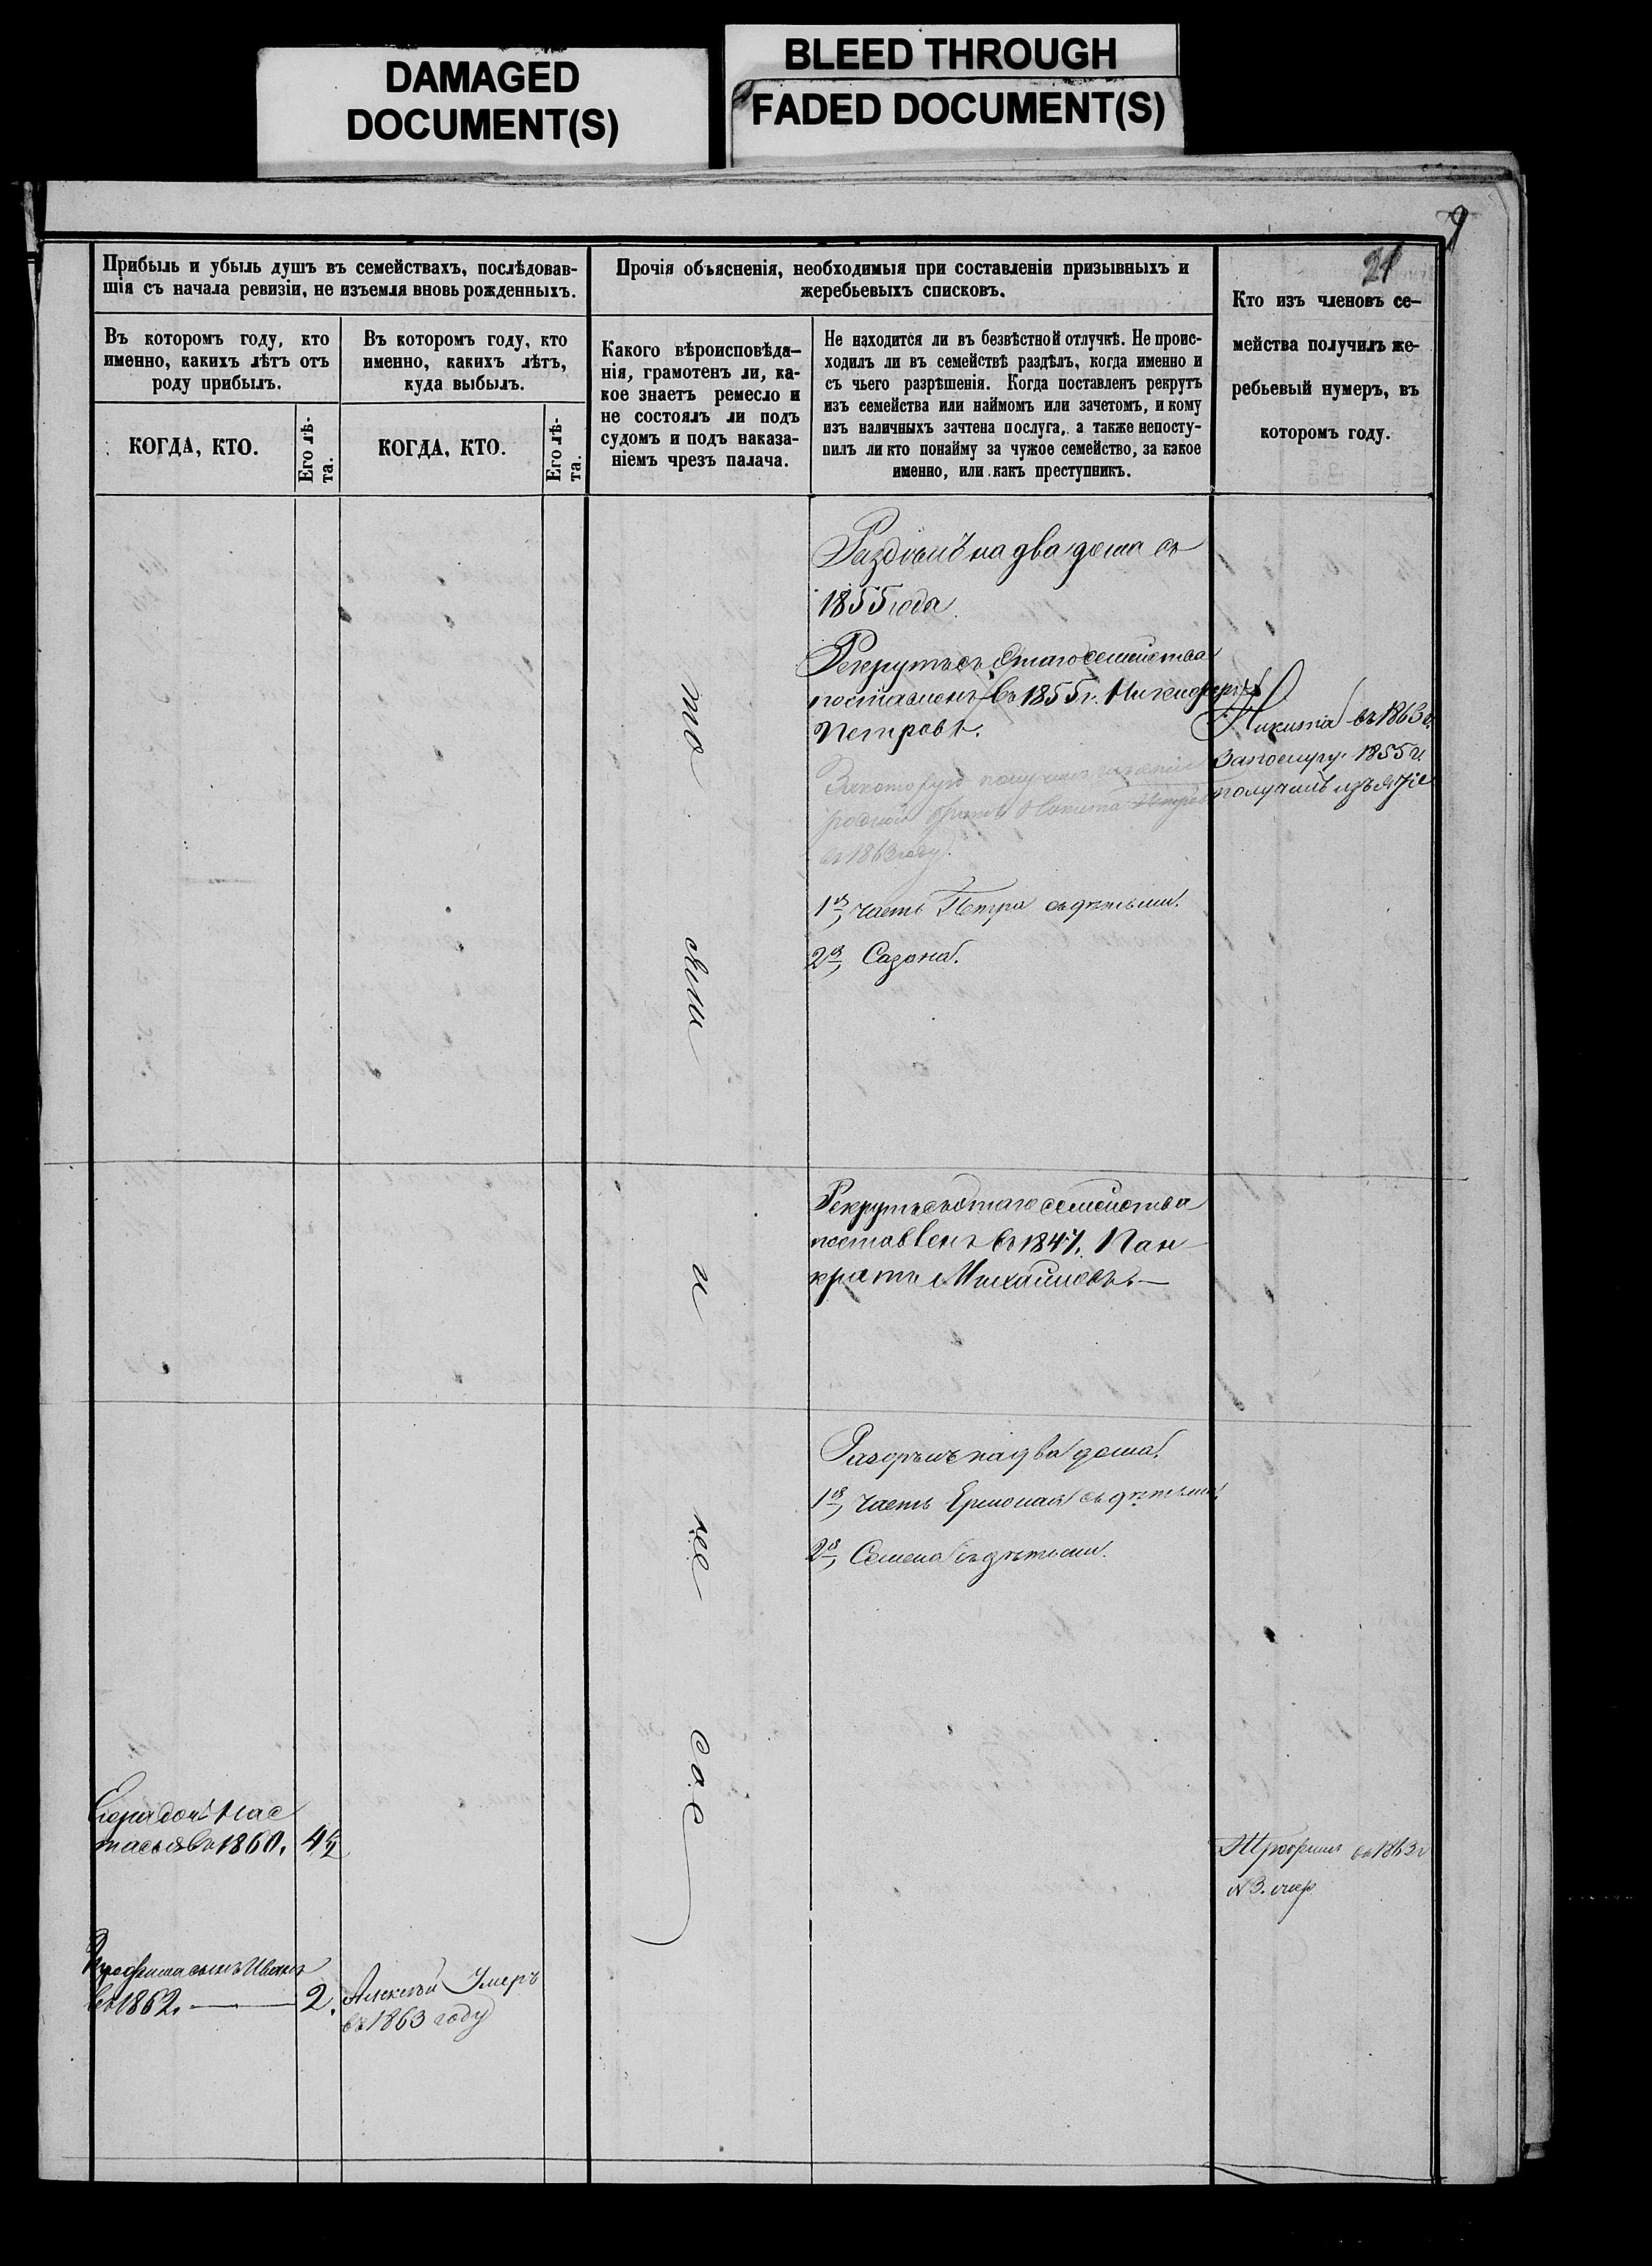 DAMAGED
DOCUMENT(S)
BLEED THROUGH
FADED DOCUMENT(S)
9
21
Прибыль и убыль душъ въ семействахъ, послѣдовав-
шія съ начала ревизіи, не изъемля вновь рожденныхъ.
Въ которомъ году, кто
именно, какихъ лѣтъ отъ
роду прибылъ.
КОГДА, КТО.
Его лѣ-
та.
Въ которомъ году, кто
именно, какихъ лѣтъ,
куда выбылъ.
КОГДА, КТО.
Его лѣ-
та.
Прочія объясненія, необходимыя при составленіи призывныхъ и
жеребьевыхъ списковъ.
Какого вѣроисповѣда-
нія, грамотенъ ли, ка-
кое знаетъ ремесло и
не состоялъ ли подъ
судомъ и подъ наказа-
ніемъ чрезъ палача.
Не находится ли въ безвѣстной отлучкѣ. Не проис-
ходилъ ли въ семействѣ раздѣлъ, когда именно и
съ чьего разрѣшенія. Когда поставленъ рекрутъ
изъ семейства или наймомъ или зачетомъ, и кому
изъ наличныхъ зачтена послуга, а также непосту-
пилъ ли кто понайму за чужое семейство, за какое
именно, или какъ преступникъ.
Кто изъ членовъ се-
мейства получилъ же-
ребьевый нумеръ, въ
которомъ году.
то
же
и
не
сос
на два дома съ
1855 года
Рекрутъ съ этаго семейства
поставленъ въ 1855 г. Никифоръ
Петровъ.
родной братъ Никита Петровъ
въ 1863 году.
1я, часть Петра съ дѣтьми.
2я, Сазона.
Никита въ 1863 г.
1855 г.
получилъ
Рекрутъ съ этаго семейства
поставленъ въ 1847. Пан-
кратъ Михайловъ —
на два дома.
1я, часть Ермолая съ дѣтьми.
2я, Семена съ дѣтьми.
Нас
тасья въ 1860. 4½
Трофимъ въ 1863 г
№ 3.
Трофима сынъ Иванъ
въ 1862. — 2.
Алексѣй Умеръ
въ 1863 году